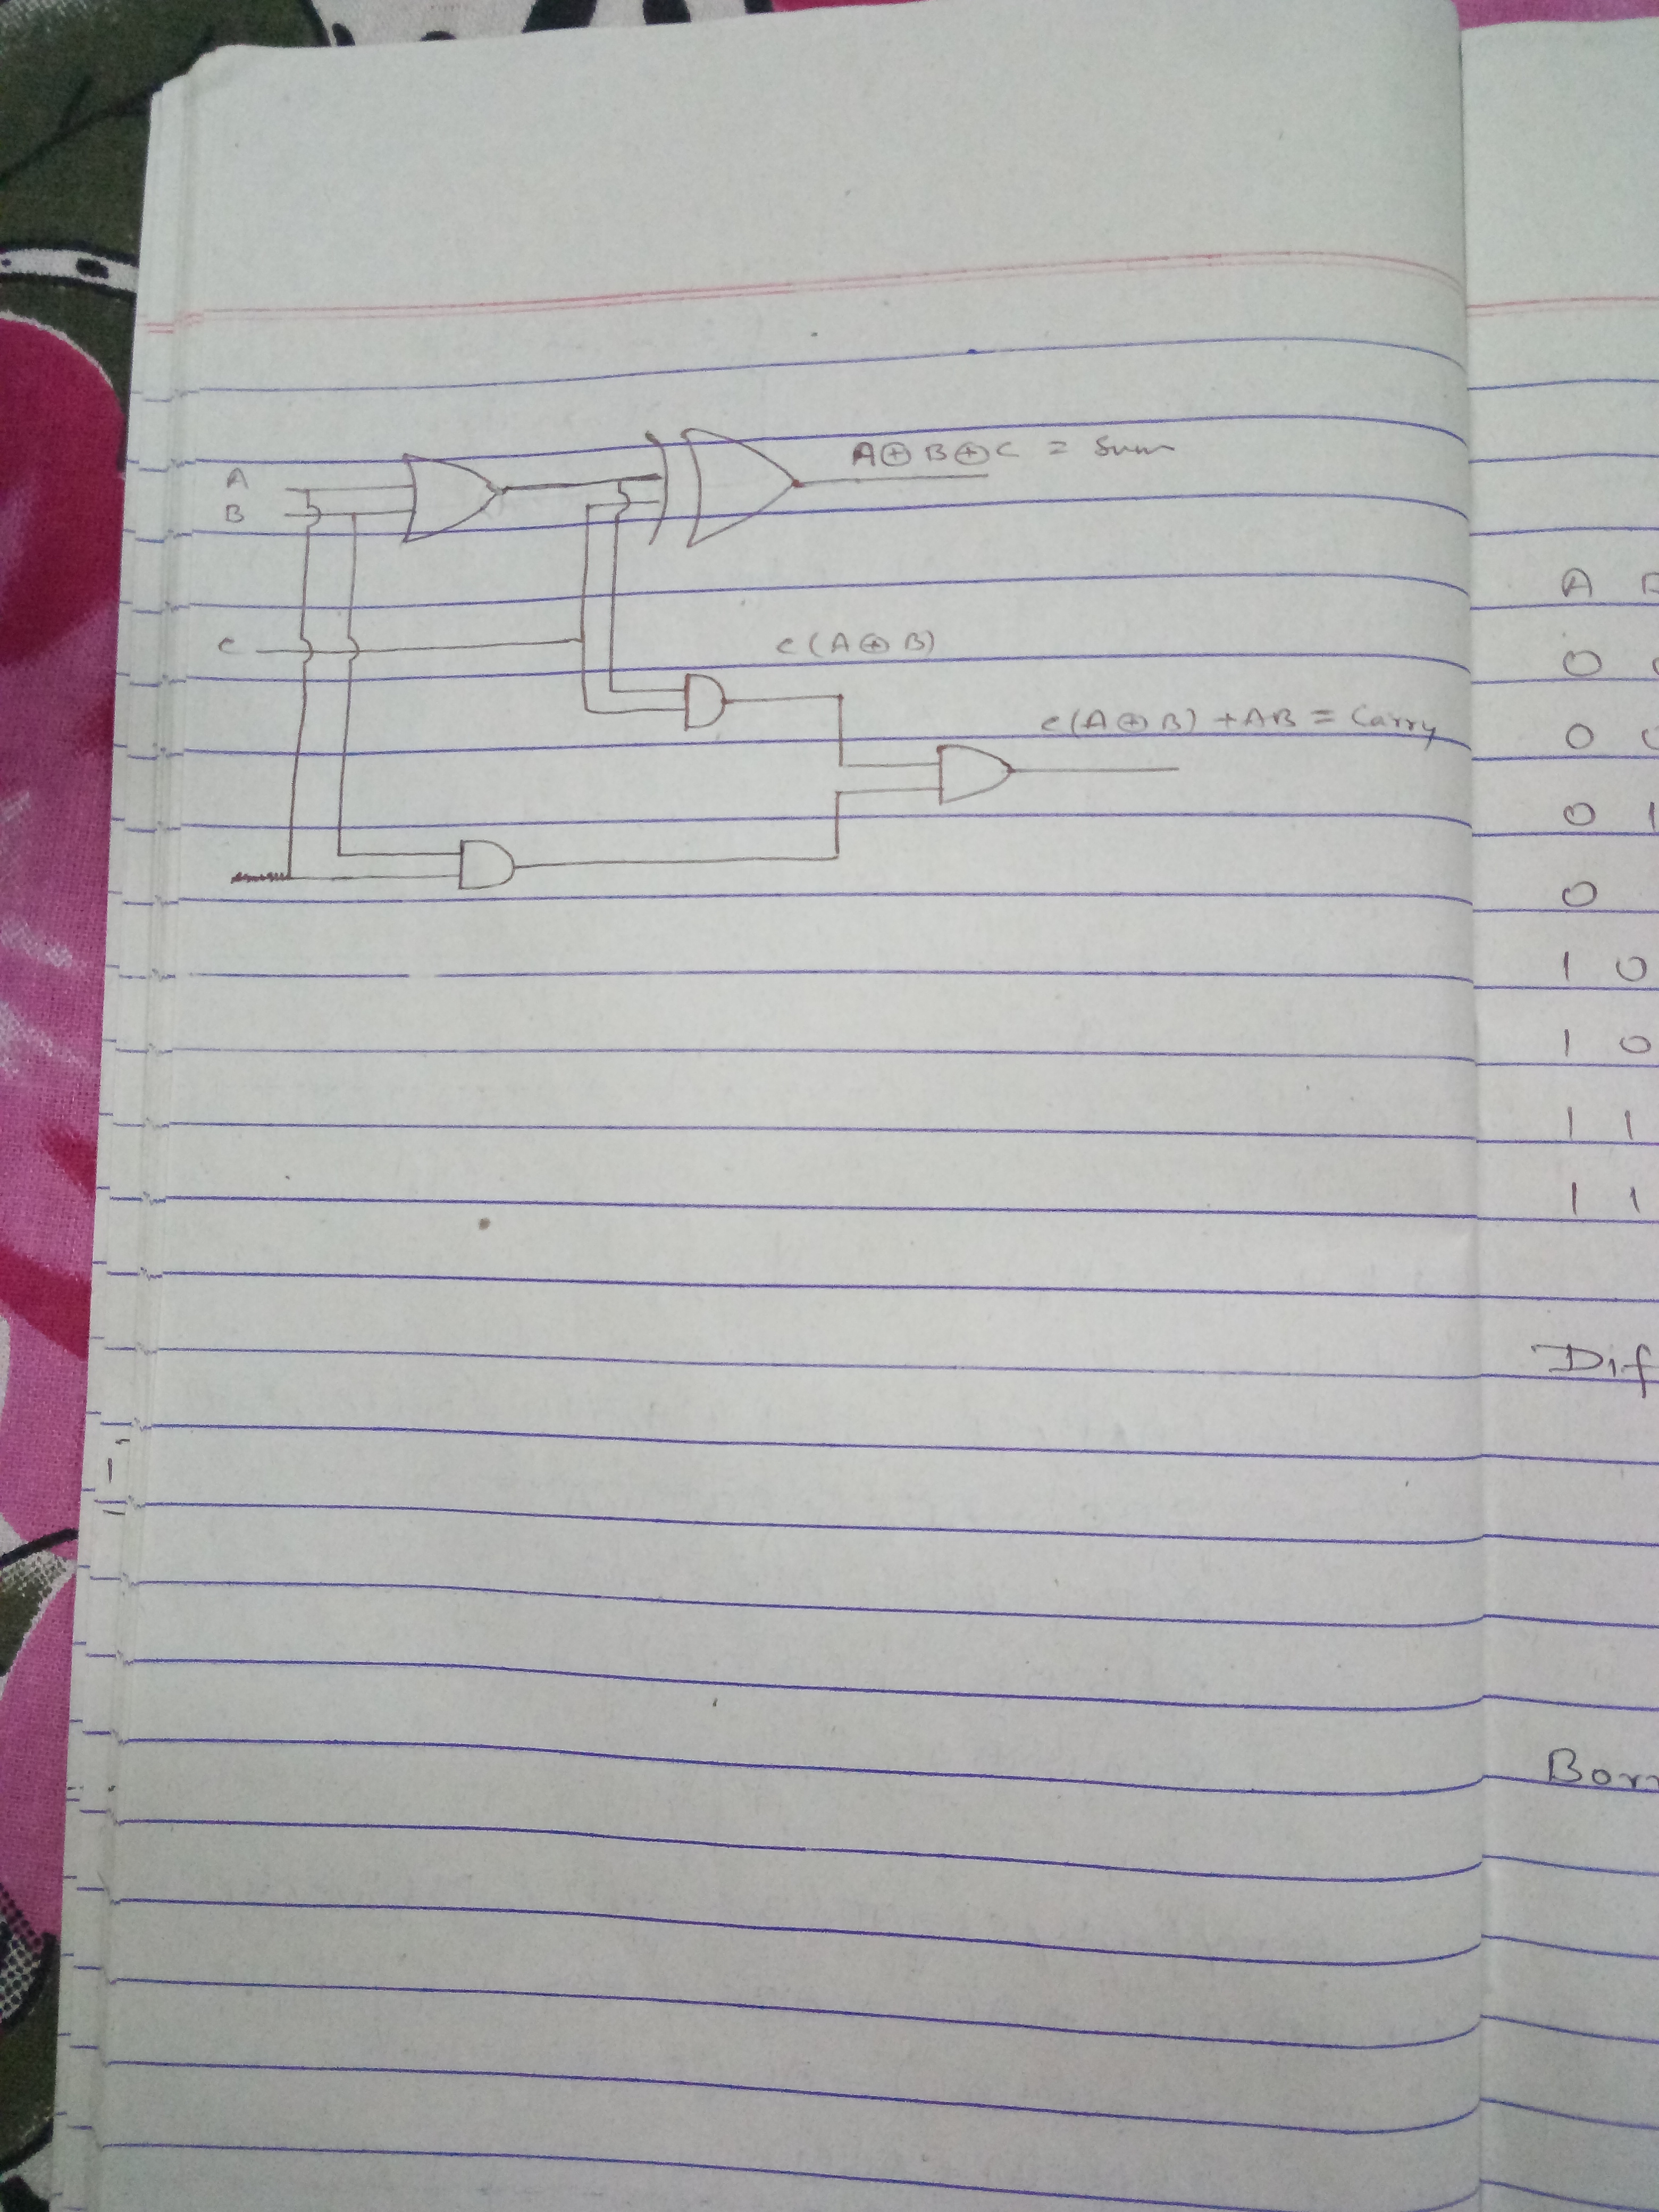 A
B
A⊕B⊕C = Sum
C
C(A⊕B)
C(A⊕B)+AB = Carry
A
0
0
0 1
0
1 0
1 0
1 1
1 1
Dif
Borr